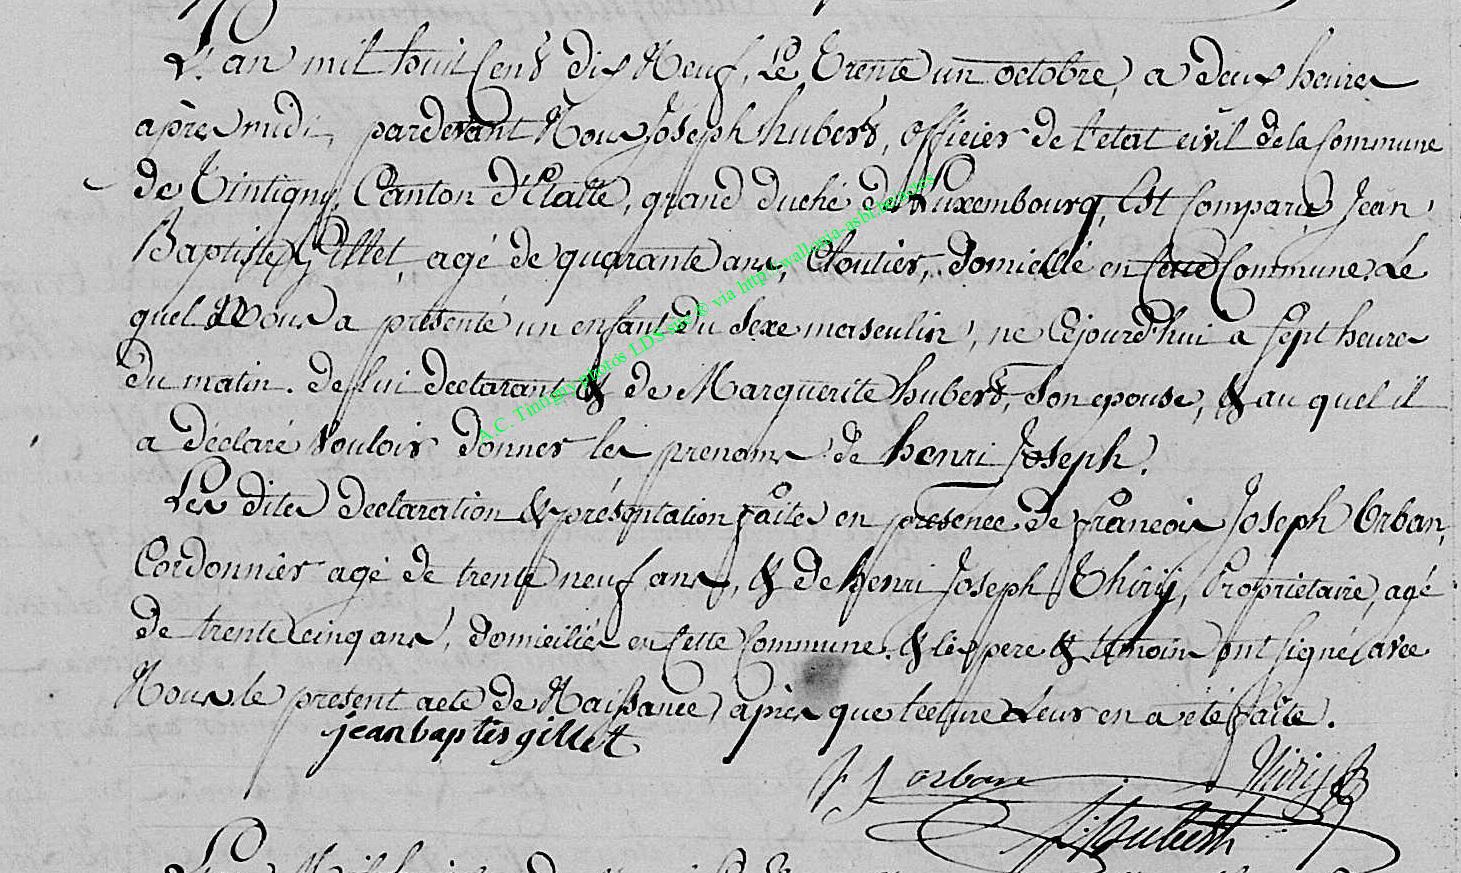 L'an mil huit Cent dix Neuf, Le Trente un octobre, a deux heures
après midi, pardevant Nous Joseph hubert, officier de l'etat civil de la Commune
de Tintigny, Canton d'Etalle, grand duché de Luxembourg, Est Comparu Jean
Baptiste Gillet, agé de quarante ans, Cloutier, domicilié en Cette Commune. Le
quel Nous a présenté un enfant du sexe masculin, né Cejourd'hui a sept heures
du matin. de lui declarant & de Marguerite hubert, son epouse, & au quel il
a déclaré vouloir donner les prenoms de henri Joseph.
Les dites declaration & présentation faites en presence de francois Joseph Orban,
Cordonnier agé de trente neuf ans, & de henri Joseph Thiry, Propriétaire, agé
de trente cinq ans, domiciliés en Cette Commune. & les pere & témoins ont signé avec
Nous le present acte de Naissance, après que lecture Leur en a été faite.
jean baptis gillet
F J orban Thiry
J: hubert
A.C. Tintigny photos LDS via http://wallonia-asbl.be/actes